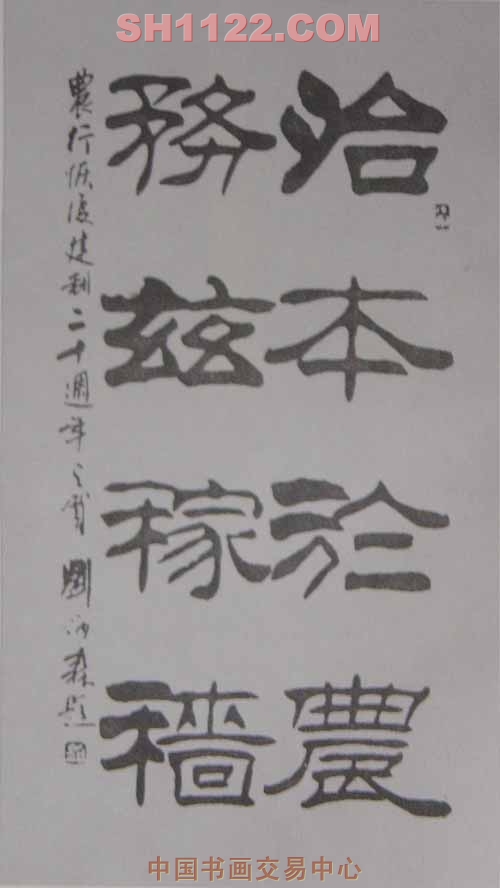 SH1122.COM
治本於農
務茲稼穡
農行恢復建制二十週年之賀 劉炳森題
中国书画交易中心